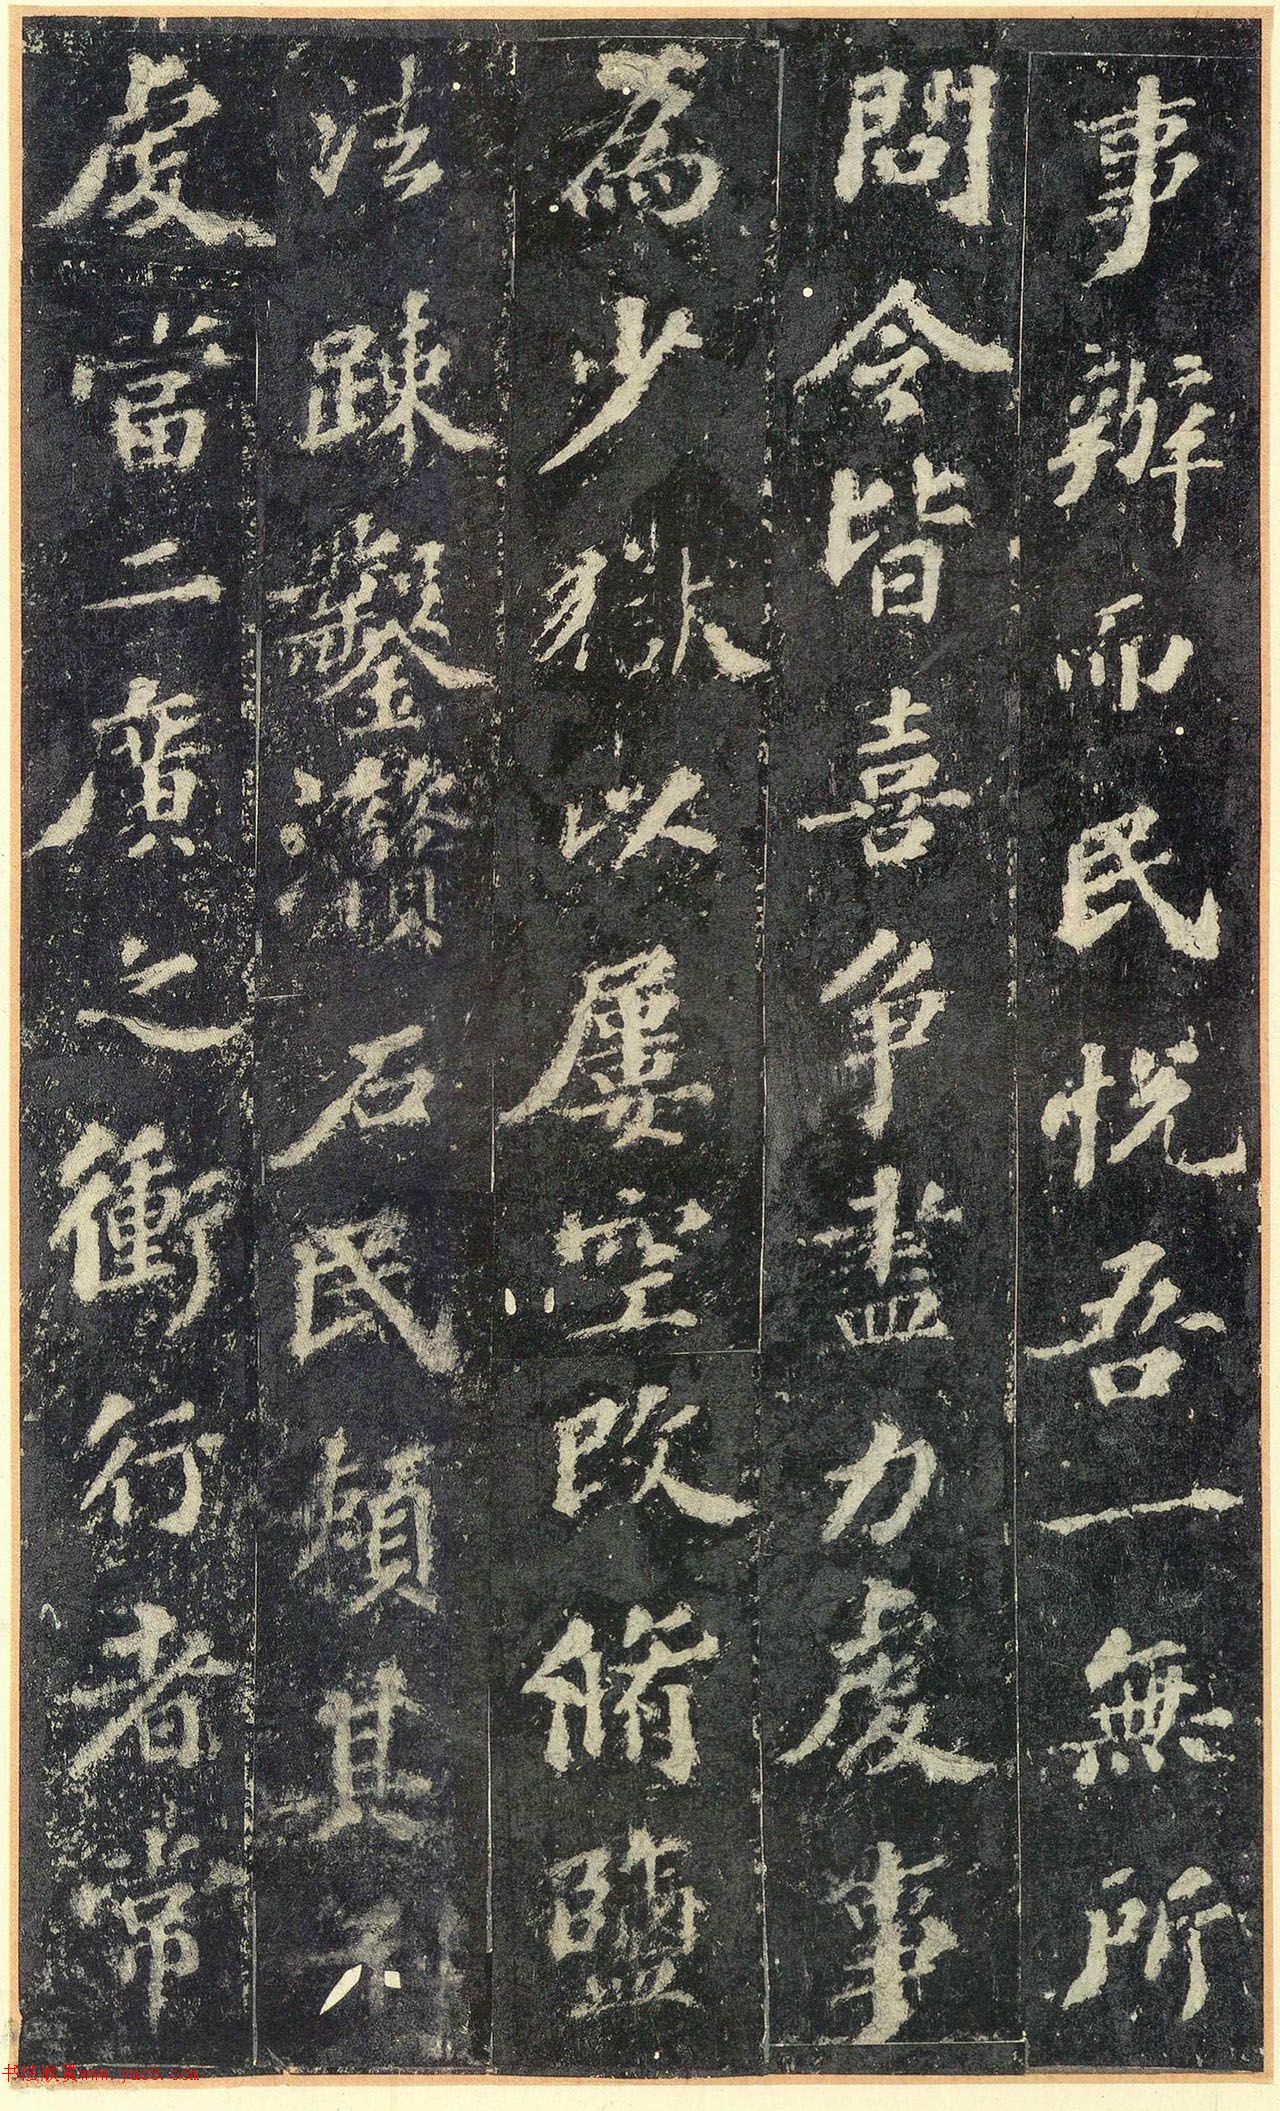 事辦而民悅吾一無所
問令皆喜爭盡力處事
為少獄以屢空改脩鹽
法踈鑿灒石民頼其利
處當二廣之衝行者常
书法欣赏www.yac8.com